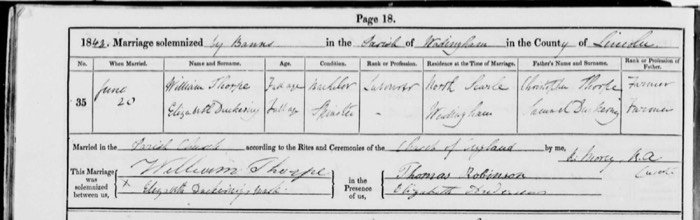 Page 18.
1843. Marriage solemnized by Banns in the Parish of Waddingham in the County of Lincoln
No. When Married. Name and Surname. Age. Condition. Rank or Profession. Residence at the Time of Marriage. Father's Name and Surname. Rank or Profession of Father.
35 June 20 William Thorpe Full age Bachelor Labourer North Scarle Christopher Thorpe Farmer
Elizabeth Duckering full age Spinster - Waddingham Samuel Duckering Farmer
Married in the Parish Church according to the Rites and Ceremonies of the Church of England by me,
B.A.
Curate
This Marriage was solemnized between us, William Thorpe
X Elizabeth Duckering's mark
in the Presence of us, Thomas Robinson
Elizabeth